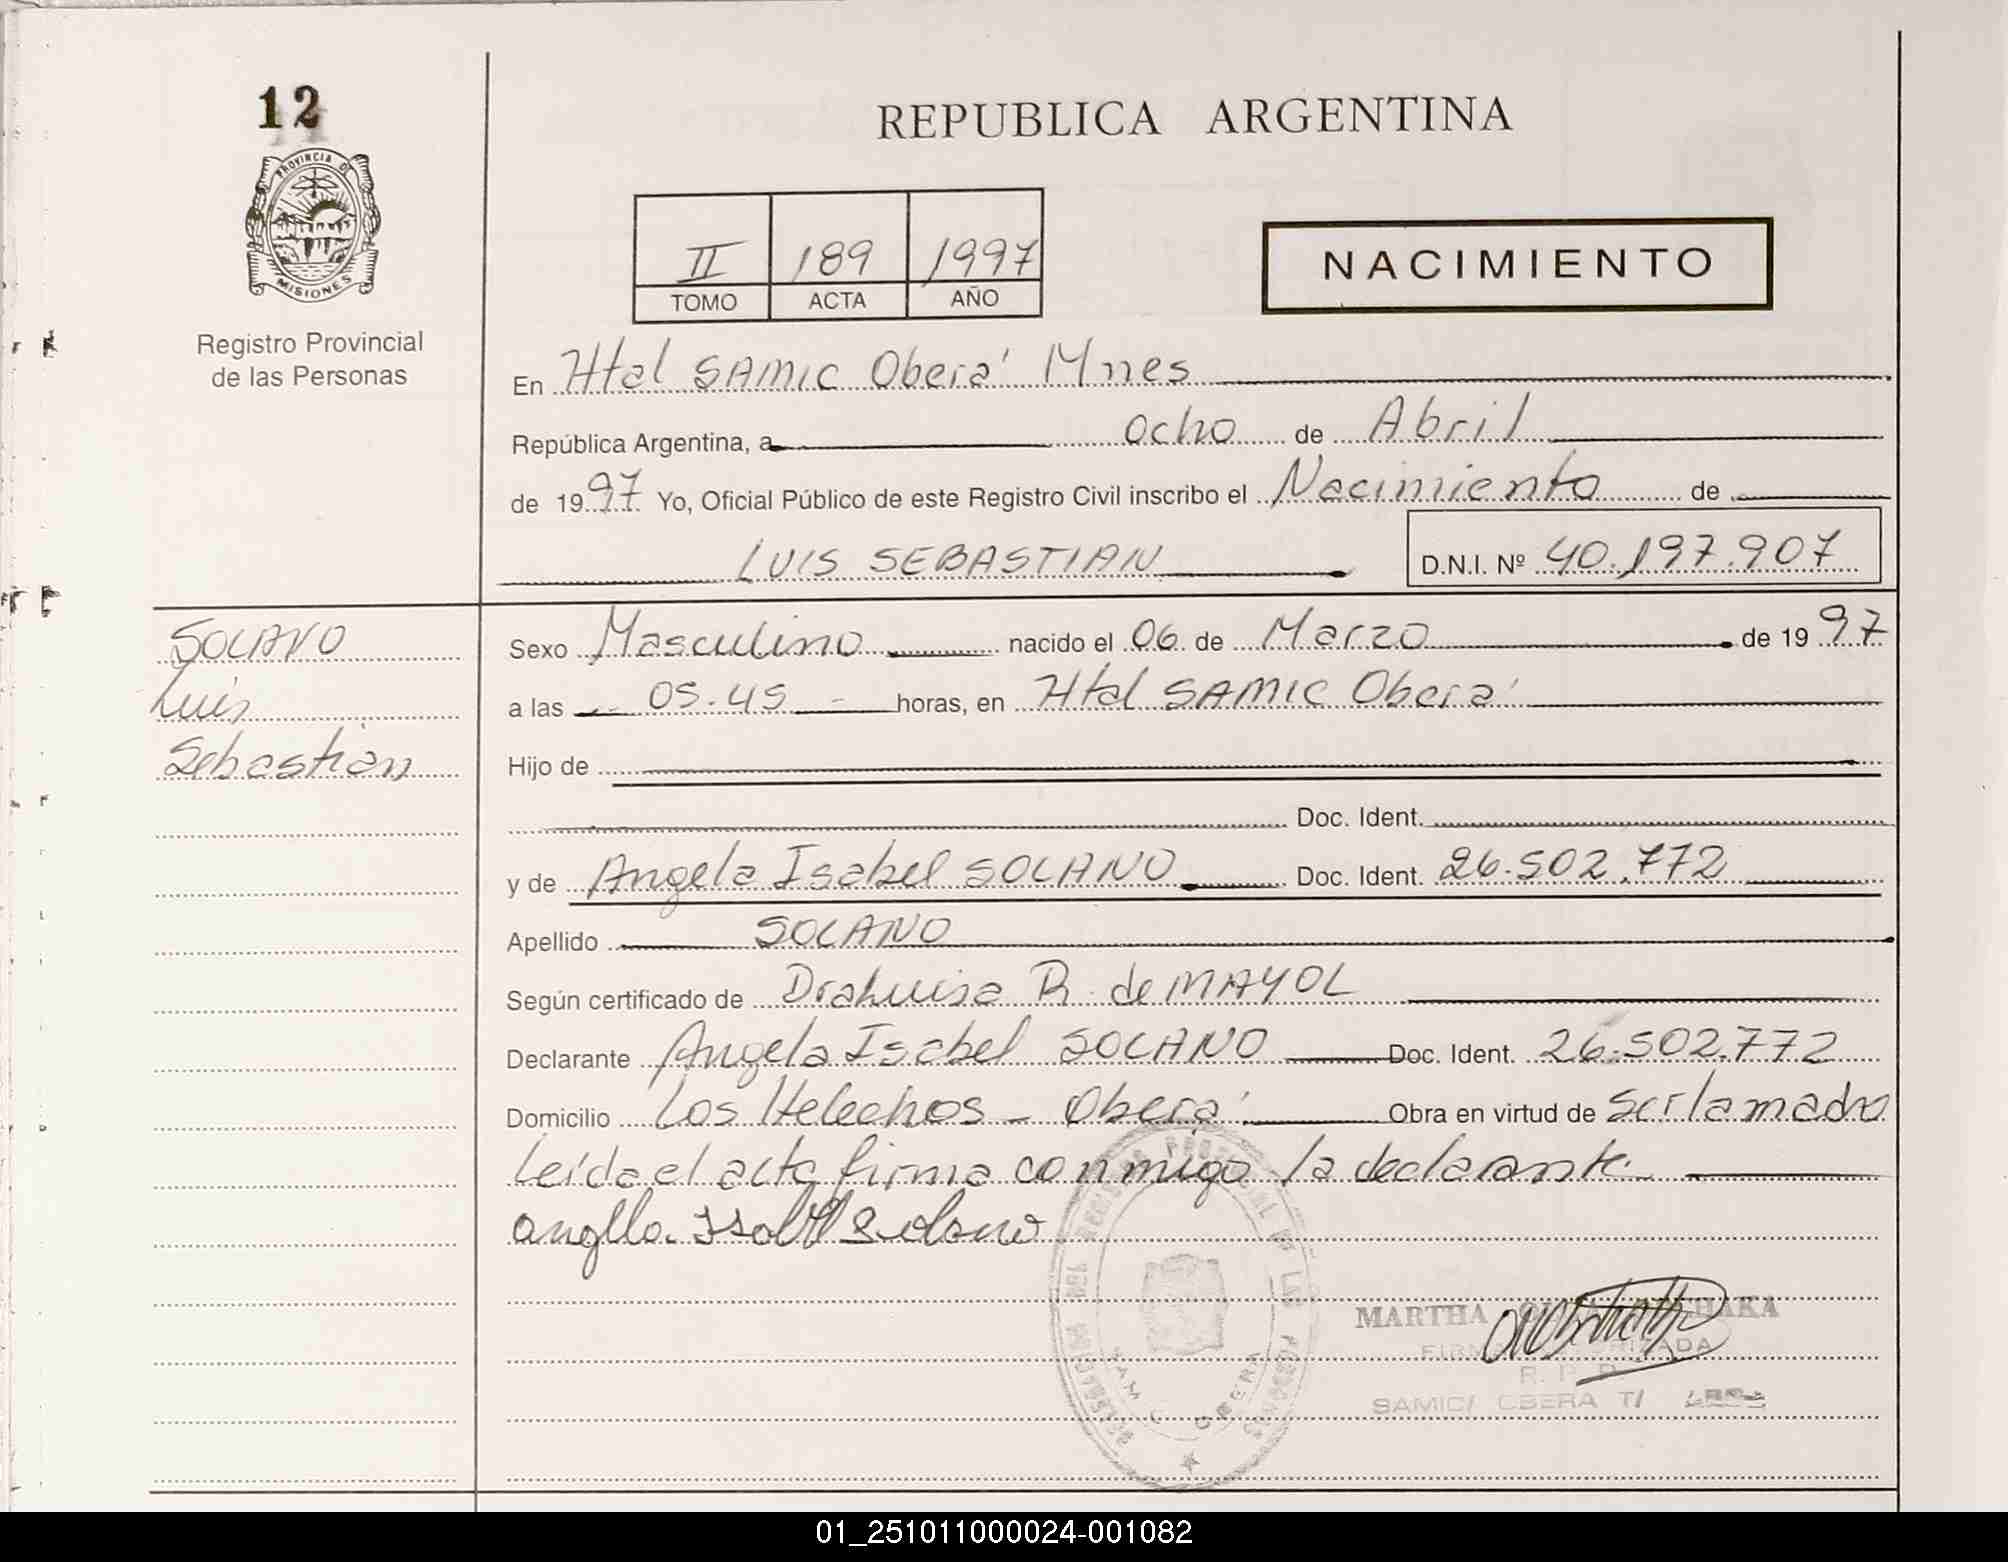 12
PROVINCIA DE
MISIONES
Registro Provincial
de las Personas
REPUBLICA ARGENTINA
II 189 1997
TOMO ACTA AÑO
NACIMIENTO
En Htal SAMIC Oberá Mnes
República Argentina, a ocho de Abril
de 1997 Yo, Oficial Público de este Registro Civil inscribo el Nacimiento de
LUIS SEBASTIAN
D.N.I. Nº 40.197.907
SOLANO
Luis
Sebastián
Sexo Masculino nacido el 06 de Marzo de 1997
a las 05.45 horas, en Htal SAMIC Oberá
Hijo de
Doc. Ident.
y de Angela Isabel SOLANO Doc. Ident. 26.502.772
Apellido SOLANO
Según certificado de Dra Luisa R. de MAYOL
Declarante Angela Isabel SOLANO Doc. Ident. 26.502.772
Domicilio Los Helechos - Oberá Obra en virtud de ser la madre
Leída el acta firma conmigo la declarante.
MARTHA
R. P. P.
SAMIC/ OBERA
01_251011000024-001082